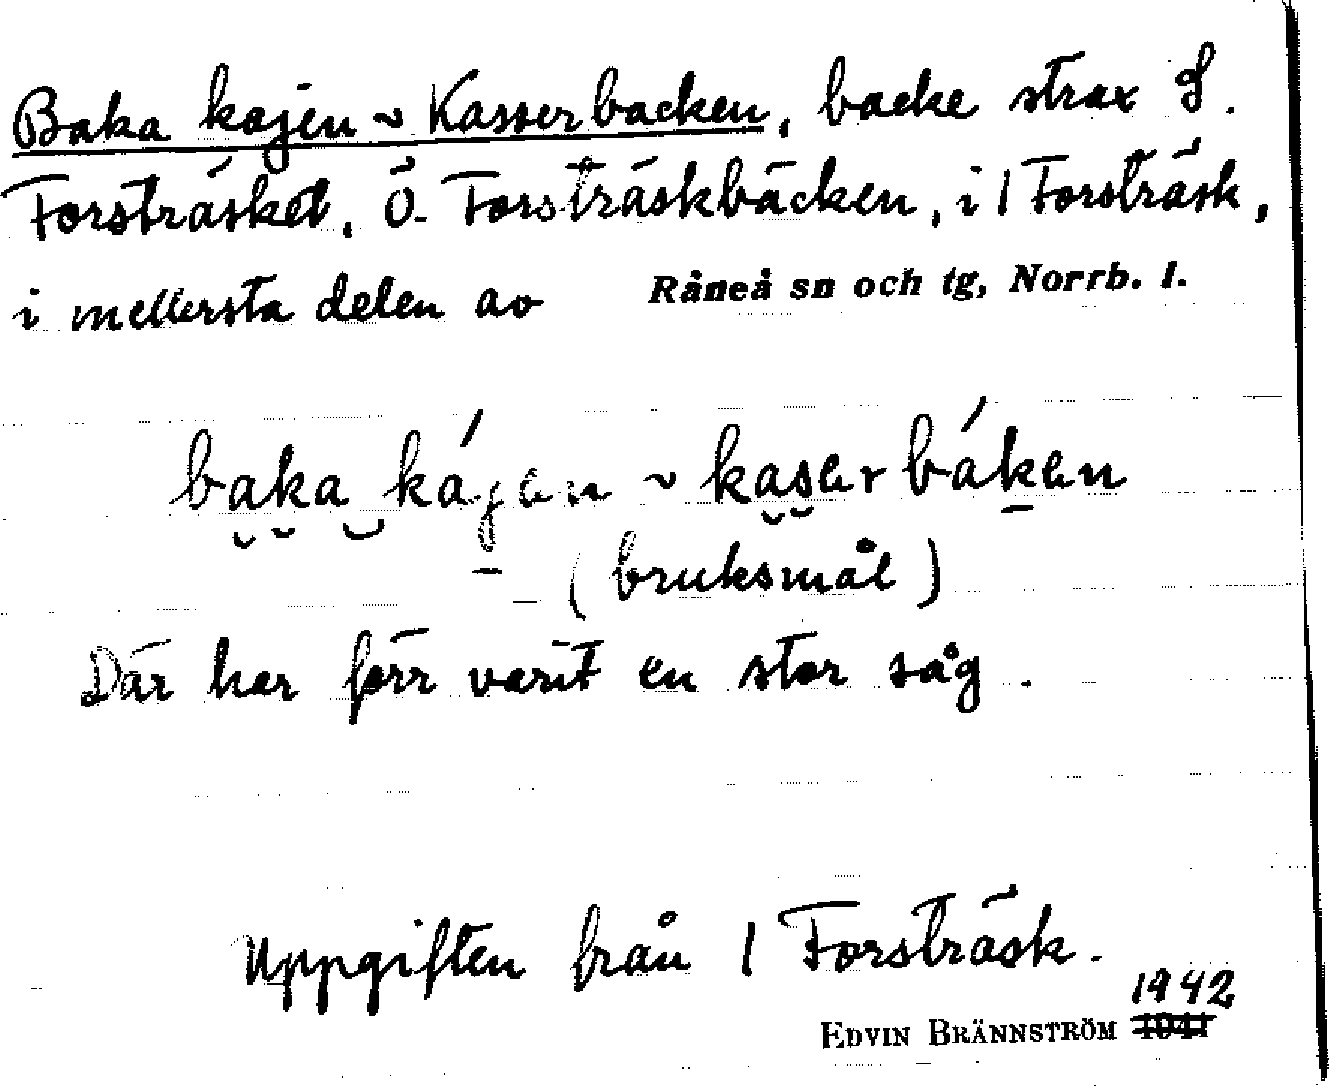 Baka kajen ~ Kasserbacken, backe strax S.
Forsträsket, Ö. Forsträskbäcken, i 1 Forsträsk,
i mellersta delen av Råneå sn och tg, Norrb. l.
baka kájen ~ kasar báken
(bruksmål)
Där har förr varit en stor såg.
Uppgiften från 1 Forsträsk.
1942
EDVIN BRÄNNSTRÖM 1941